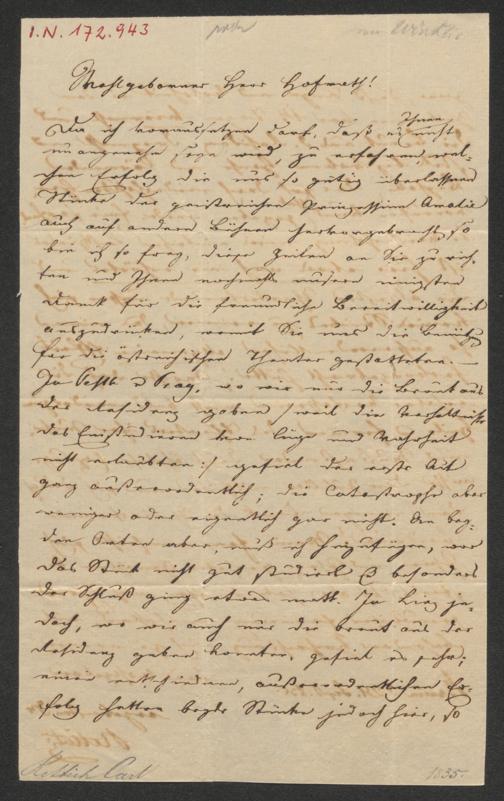 I.N. 172.943
Wohlgeborner Herr Hofrath!
Da ich voraussetzen darf, daß es Ihnen nicht
unangenehm seyn wird, zu erfahren, wel-
chen Erfolg die uns so gütig überlassenen
Stücke der geistreichen Prinzessinn Amalie
auch auf andern Bühnen hervorgebracht, so
bin ich so frey, diese Zeilen an Sie zu rich-
ten und Ihnen nochmals unsern innigsten
Dank für die freundliche Bereitwilligkeit
auszudrücken, womit Sie uns die Benützg
für die östreichischen Theater gestatteten. —
In Pesth & Prag, wo wir nur die Braut aus
der Residenz gaben /: weil die Verhältnisse
das Einstudieren von Lüge und Wahrheit
nicht erlaubten :/ gefiel der erste Akt
ganz außerordentlich; die Catastrophe aber
weniger oder eigentlich gar nicht. An bey-
den Orten aber, muß ich hinzufügen, war
das Stück nicht gut studiert & besonders
der Schluß ging etwas matt. In Linz je-
doch, wo wir auch nur die Braut aus der
Residenz geben konnten, gefiel es sehr;
einen entschiedenen, außerordentlichen Er-
folg hatten beyde Stücke jedoch hier, so
Rettich Carl
1835.